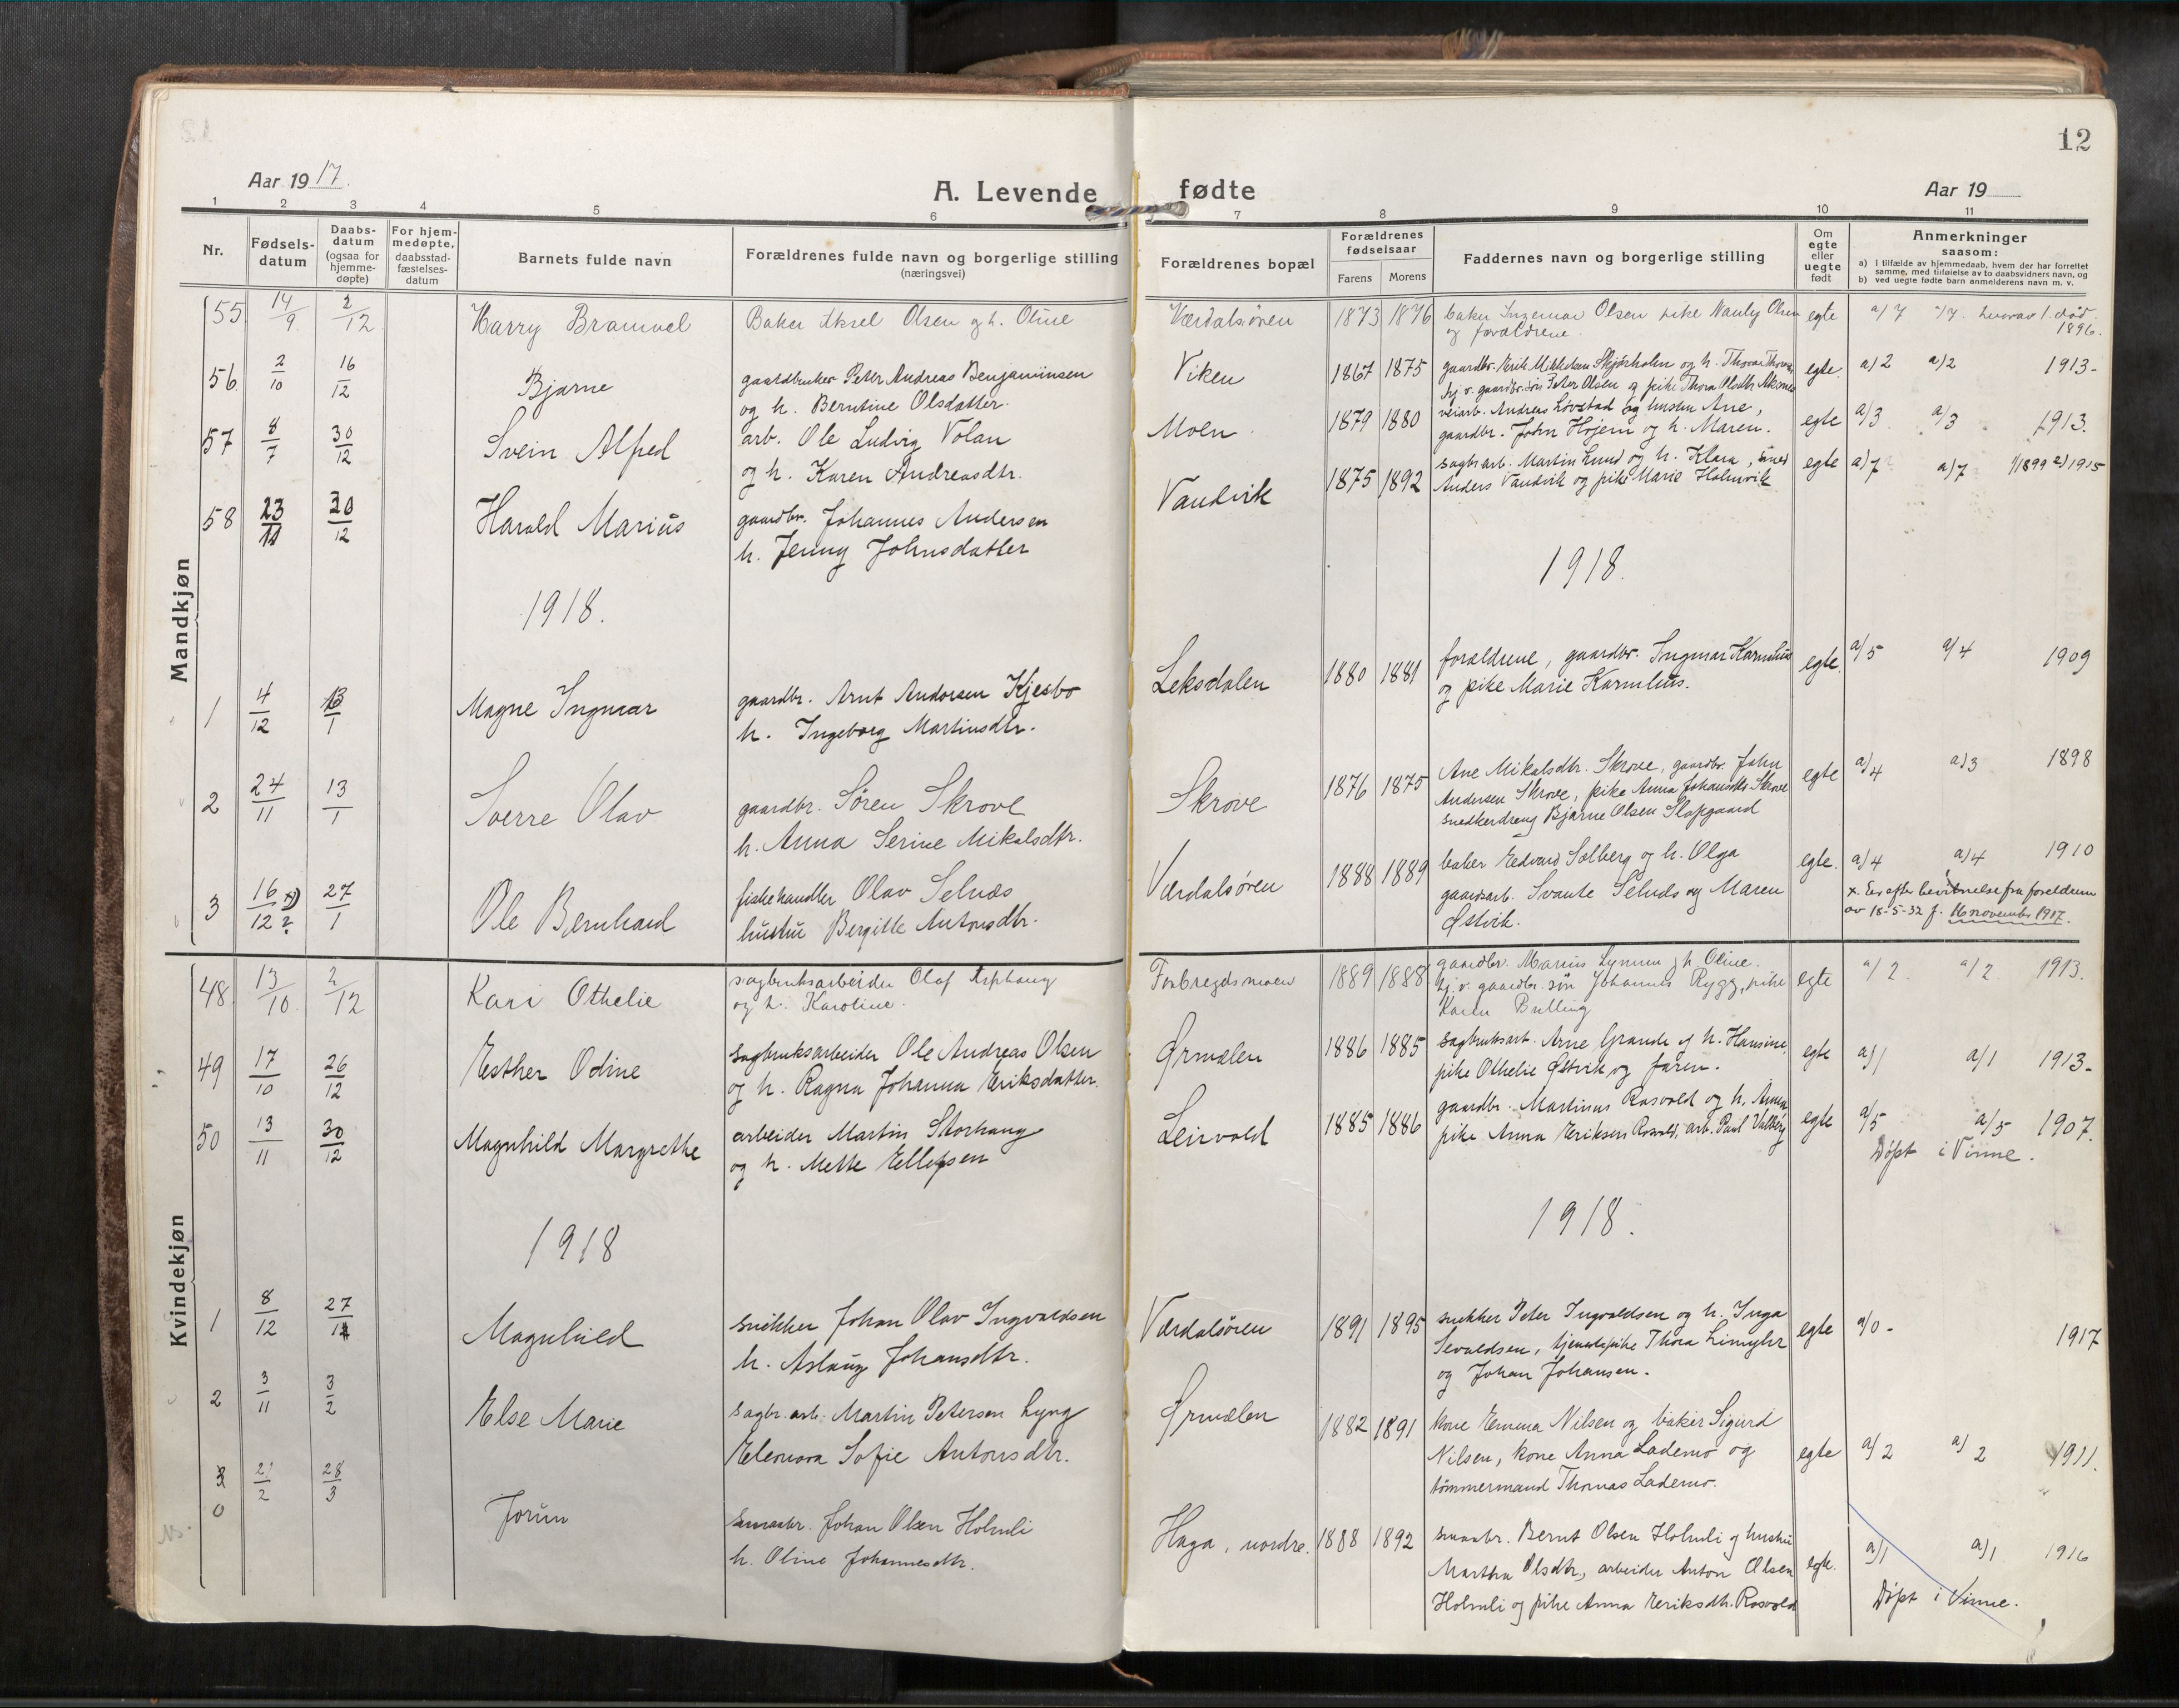 12
Aar 1917.
A. Levende fødte
Aar 19
1 2 3 4 5 6 7 8 9 10 11
Nr.
Fødsels-
datum
Daabs-
datum
(ogsaa for
hjemme-
døpte)
For hjem-
medøpte,
daabsstad-
fæstelses-
datum
Barnets fulde navn
Forældrenes fulde navn og borgerlige stilling
(næringsvei)
Forældrenes bopæl
Forældrenes
fødselsaar
Farens Morens
Faddernes navn og borgerlige stilling
Om
egte
eller
uegte
født
Anmerkninger
saasom:
a) i tilfælde av hjemmedaab, hvem der har forrettet
samme, med tilføielse av to daabsvidners navn, og
b) ved uegte fødte barn anmelderens navn m. v.
Mandkjøn
55 14/9 2/12 Harry Bramvel
Baker Aksel Olsen og h. Oline
Værdalsøren 1873 1876
baker Ingemar Olsen pike Nanly Olsen
og forældrene.
egte a/7 a/7 hvorav 1 død
1896.
56 2/10 16/12 Bjarne
gaardbruker Peter Andreas Benjaminsen
og h. Berntine Olsdatter.
Viken 1867 1875
gaardbr. Erik Mikkelsen Skjørholm og h.
hj. v. gaardbr. søn Peter Olsen og pike Thora Olsdtr.
egte. a/2 a/2 1913-
57 8/7 30/12 Svein Alfred
arb. Ole Ludvig Volan
og h. Karen Andreasdtr.
Moen. 1879 1880
veiarb. Andreas Løvstad og hustru Ane,
gaardbr. John Hojem og h. Maren.
egte a/3 a/3 1913.
58 23/11 30/12 Harald Marius
gaardbr. Johannes Andersen
h. Jenny Johnsdatter
Vandvik 1875 1892
sagbr.arb. Martin Lund og h. Klara, smed
Anders Vandvik og pike Marie Holmvik
egte a/7 a/7 1/1899 2/1915
1918.
1918.
1 4/12 13/1 Magne Ingmar
gaardbr. Arnt Andorsen Kjesbo
h. Ingeborg Martinsdtr.
Leksdalen 1880 1881
forældrene, gaardbr. Ingmar Karmhus
og pike Marie Karmhus.
egte. a/5 a/4 1909
2 24/11 13/1 Sverre Olav
gaardbr. Søren Skrove
h. Anna Serine Mikalsdtr.
Skrove 1876 1875
Ane Mikalsdtr. Skrove, gaardbr. John
Andersen Skrove, pike Anna Johansdtr. Skrove
snedkerdreng Bjarne Olsen Slapgaard
egte a/4 a/3 1898
3 16/12 x) ? 27/1 Ole Bernhard
fiskehandler Olav Selnæs
hustru Bergitte Antonsdtr.
Værdalsøren 1888 1889
baker Edvard Solberg og h. Olga
gaardsarb. Svante Selnæs og Maren
Østvik.
egte. a/4 a/4 1910
x. Er efter bevitnelse fra foreldrene
av 18-5-32 f. 16 november 1917.
Kvindekjøn
48 13/10 2/12 Kari Othelie
sagbruksarbeider Olaf Asphaug
og h. Karoline.
Forbregdsmoen 1889 1888
gaardbr. Marius Lynum og h. Oline.
hj. v. gaardbr. søn Johannes Rygg, pike
Karen Bulling
egte a/2. a/2 1913.
49 17/10 26/12 Esther Odine
sagbruksarbeider Ole Andreas Olsen
og h. Ragna Johanna Eriksdatter.
Ørmelen 1886 1885
sagbruksarb. Arne Grande og h. Hansine,
pike Othelie Østvik og faren.
egte a/1 a/1 1913-
50 13/11 30/12 Magnhild Margrethe
arbeider Martin Storhaug
og h. Mette Ellefsen
Leirvold 1885 1886
gaardbr. Martinus Rosvold og h. Anna
pike Anna Eriksen Rosvold, arb. Paul Valberg
egte a/5 a/5 1907.
Døpt i Vinne.
1918
1918.
1 8/12 27/1 Magnhild
snikker Johan Olav Ingvaldsen
h. Aslaug Johansdtr.
Værdalsøren 1891 1895
snekker Peter Ingvaldsen og h. Inga
Sevaldsen, tjenestepike Thora Limyhr
og Johan Johansen.
egte a/0- 1917
2 3/11 3/2 Else Marie
sagbr. arb. Martin Petersen Lyng
Eleonora Sofie Antonsdtr.
Ørmelen 1882 1891
kone Emma Nilsen og baker Sigurd
Nilsen, kone Anna Lademo og
tømmermand Thomas Lademo.
egte a/2 a/2 1911.
3 21/2 28/3 Jorun
0
smaabr. Johan Olsen Holmli
h. Oline Johannesdtr.
Haga, nordre. 1888 1892
smaabr. Bernt Olsen Holmli og hustru
Martha Olsdtr., arbeider Anton Olsen
Holmli og pike Anna Eriksdtr. Rosvold
egte. a/1 a/1 1916
Døpt i Vinne.